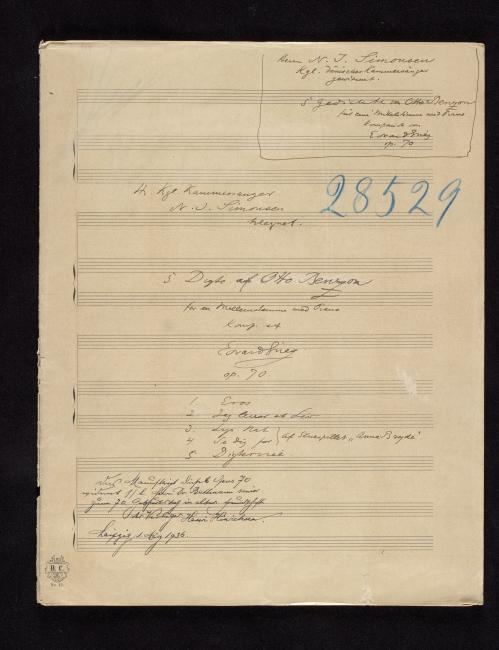 Herrn N. J. Simonsen
Kgl. Dänischer Kammersänger
gewidmet.
5 Gedichte von Otto Benzon
für eine Mittelstimme und Piano
komponirt von
Edvard Grieg
op. 70
28529
Hr. Kgl. Kammersanger
N. J. Simonsen
tilegnet.
5 Digte af Otto Benzon
for en Mellemstemme med Piano
komp. af
Edvard Grieg
op. 70.
1. Eros
2. Jeg lever et Liv
3. Lys Nat
4 Se dig for af Skuespillet „Anna Bryde"
5 Digtervise
Dies Manuskript Opus 70
Dr.
zum 70. Geburtstag in alter
Henri Hinrichsen.
Leipzig, 1. 1936.
B. C.
No. 12.